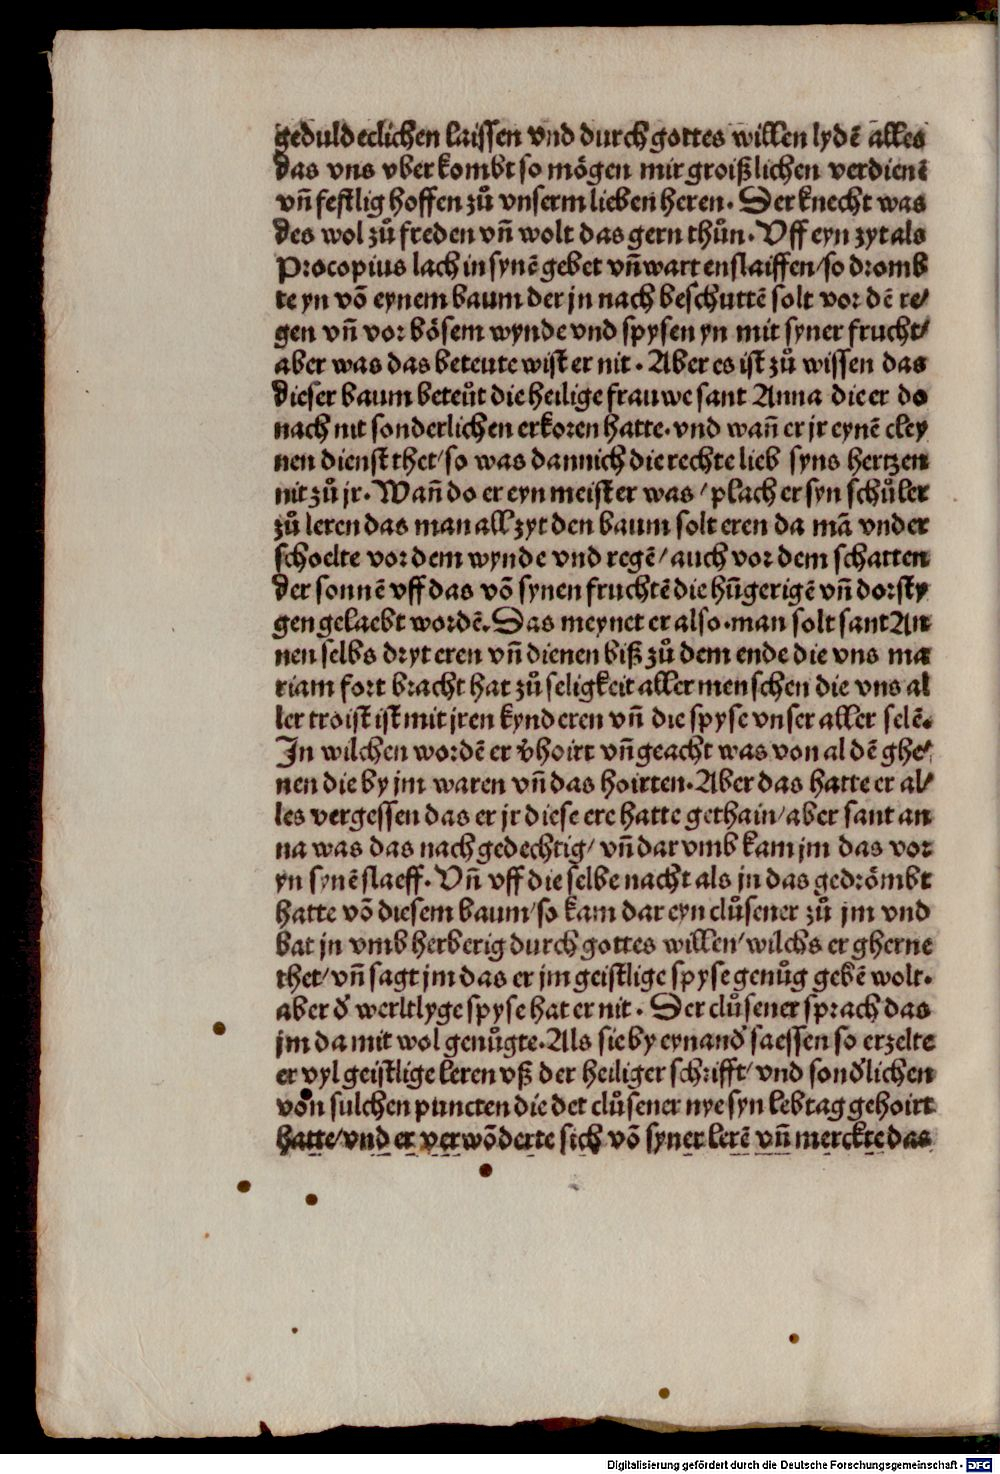 geduldeclichen laissen vnd durch gottes willen lydē alles
das vns vber kombt so mögen mir groißlichen verdienē
vn̄ festlig hoffen zů vnserm lieben heren. Der knecht was
des wol zů freden vn̄ wolt das gern thůn. Vff eyn zyt als
Procopius lach in synē gebet vn̄ wart enslaiffen/ so dromb
te yn vō eynem baum der jn nach beschuttē solt vor dē re/
gen vn̄ vor bösem wynde vnd spysen yn mit syner frucht/
aber was das beteute wist er nit. Aber es ist zů wissen das
dieser baum beteůt die heilige frauwe sant Anna die er do
nach nit sonderlichen erkoren hatte. vnd wan̄ er jr eynē cley
nen dienst thet/ so was dannich die rechte lieb syns hertzen
nit zů jr. Wan̄ do er eyn meister was/ plach er syn schůler
zů leren das man all zyt den baum solt eren da mā vnder
schoelte vor dem wynde vnd regē/ auch vor dem schatten
der sonnē vff das vō synen fruchtē die hūgerigē vn̄ dorsty
gen gelaebt wordē. Das meynet er also. man solt sant An
nen selbs dryt eren vn̄ dienen biß zů dem ende die vns ma
riam fort bracht hat zů seligkeit aller menschen die vns al
ler troist ist mit jren kynderen vn̄ die spyse vnser aller selē.
In wilchen wordē er v̄hoirt vn̄ geacht was von al dē ghe/
nen die by jm waren vn̄ das hoirten. Aber das hatte er al/
les vergessen das er jr diese ere hatte gethain/ aber sant an
na was das nach gedechtig/ vn̄ dar vmb kam jm das vor
yn synē slaeff. Vn̄ vff die selbe nacht als jn das gedrömbt
hatte vō diesem baum/ so kam dar eyn clůsener zů jm vnd
bat jn vmb herberig durch gottes willen/ wilchs er gherne
thet/ vn̄ sagt jm das er jm geistlige spyse genůg gebē wolt.
aber d̄ werltlyge spyse hat er nit. Der clůsener sprach das
jm da mit wol genůgte. Als sie by eynand̄ saessen so erzelte
er vyl geistlige leren vß der heiliger schrifft/ vnd sond̄lichen
von sulchen puncten die det clůsener nye syn lebtag gehoirt
hatte/ vnd er verwōderte sich vō syner lerē vn̄ merckte das
Digitalisierung gefördert durch die Deutsche Forschungsgemeinschaft - DFG